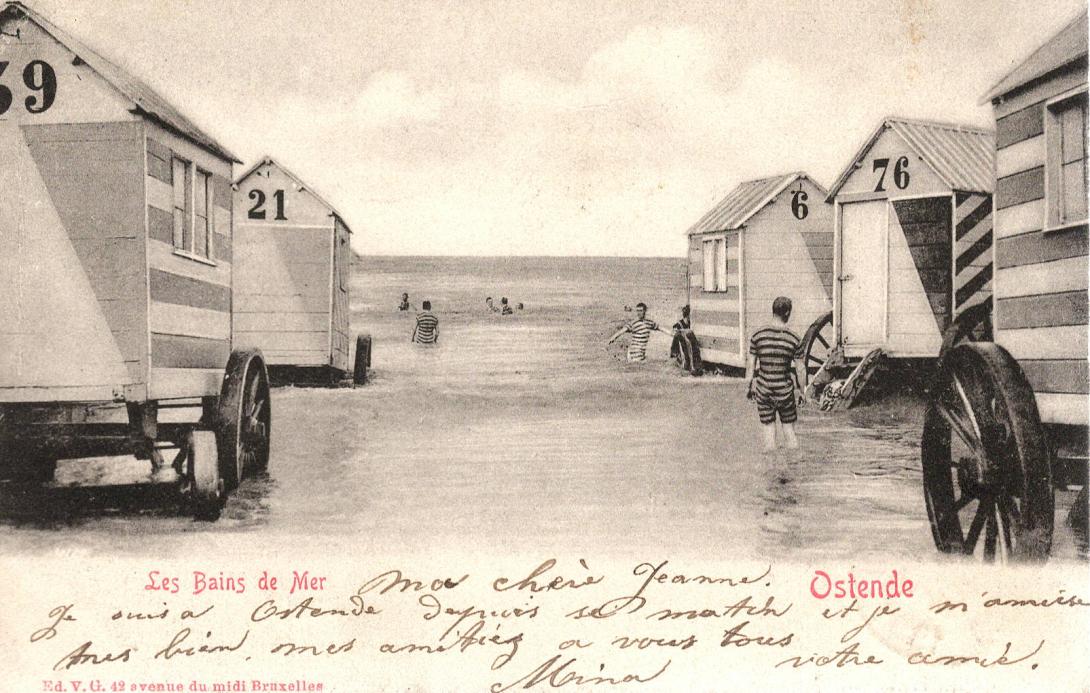 39
21
6
76
Les Bains de Mer
Ostende
Ma chère Jeanne.
Je suis a Ostende depuis se matin et je m'amuse
tres bien, mes amitiez a vous tous
votre amie.
Mina
Ed. V. G. 42 avenue du midi Bruxelles